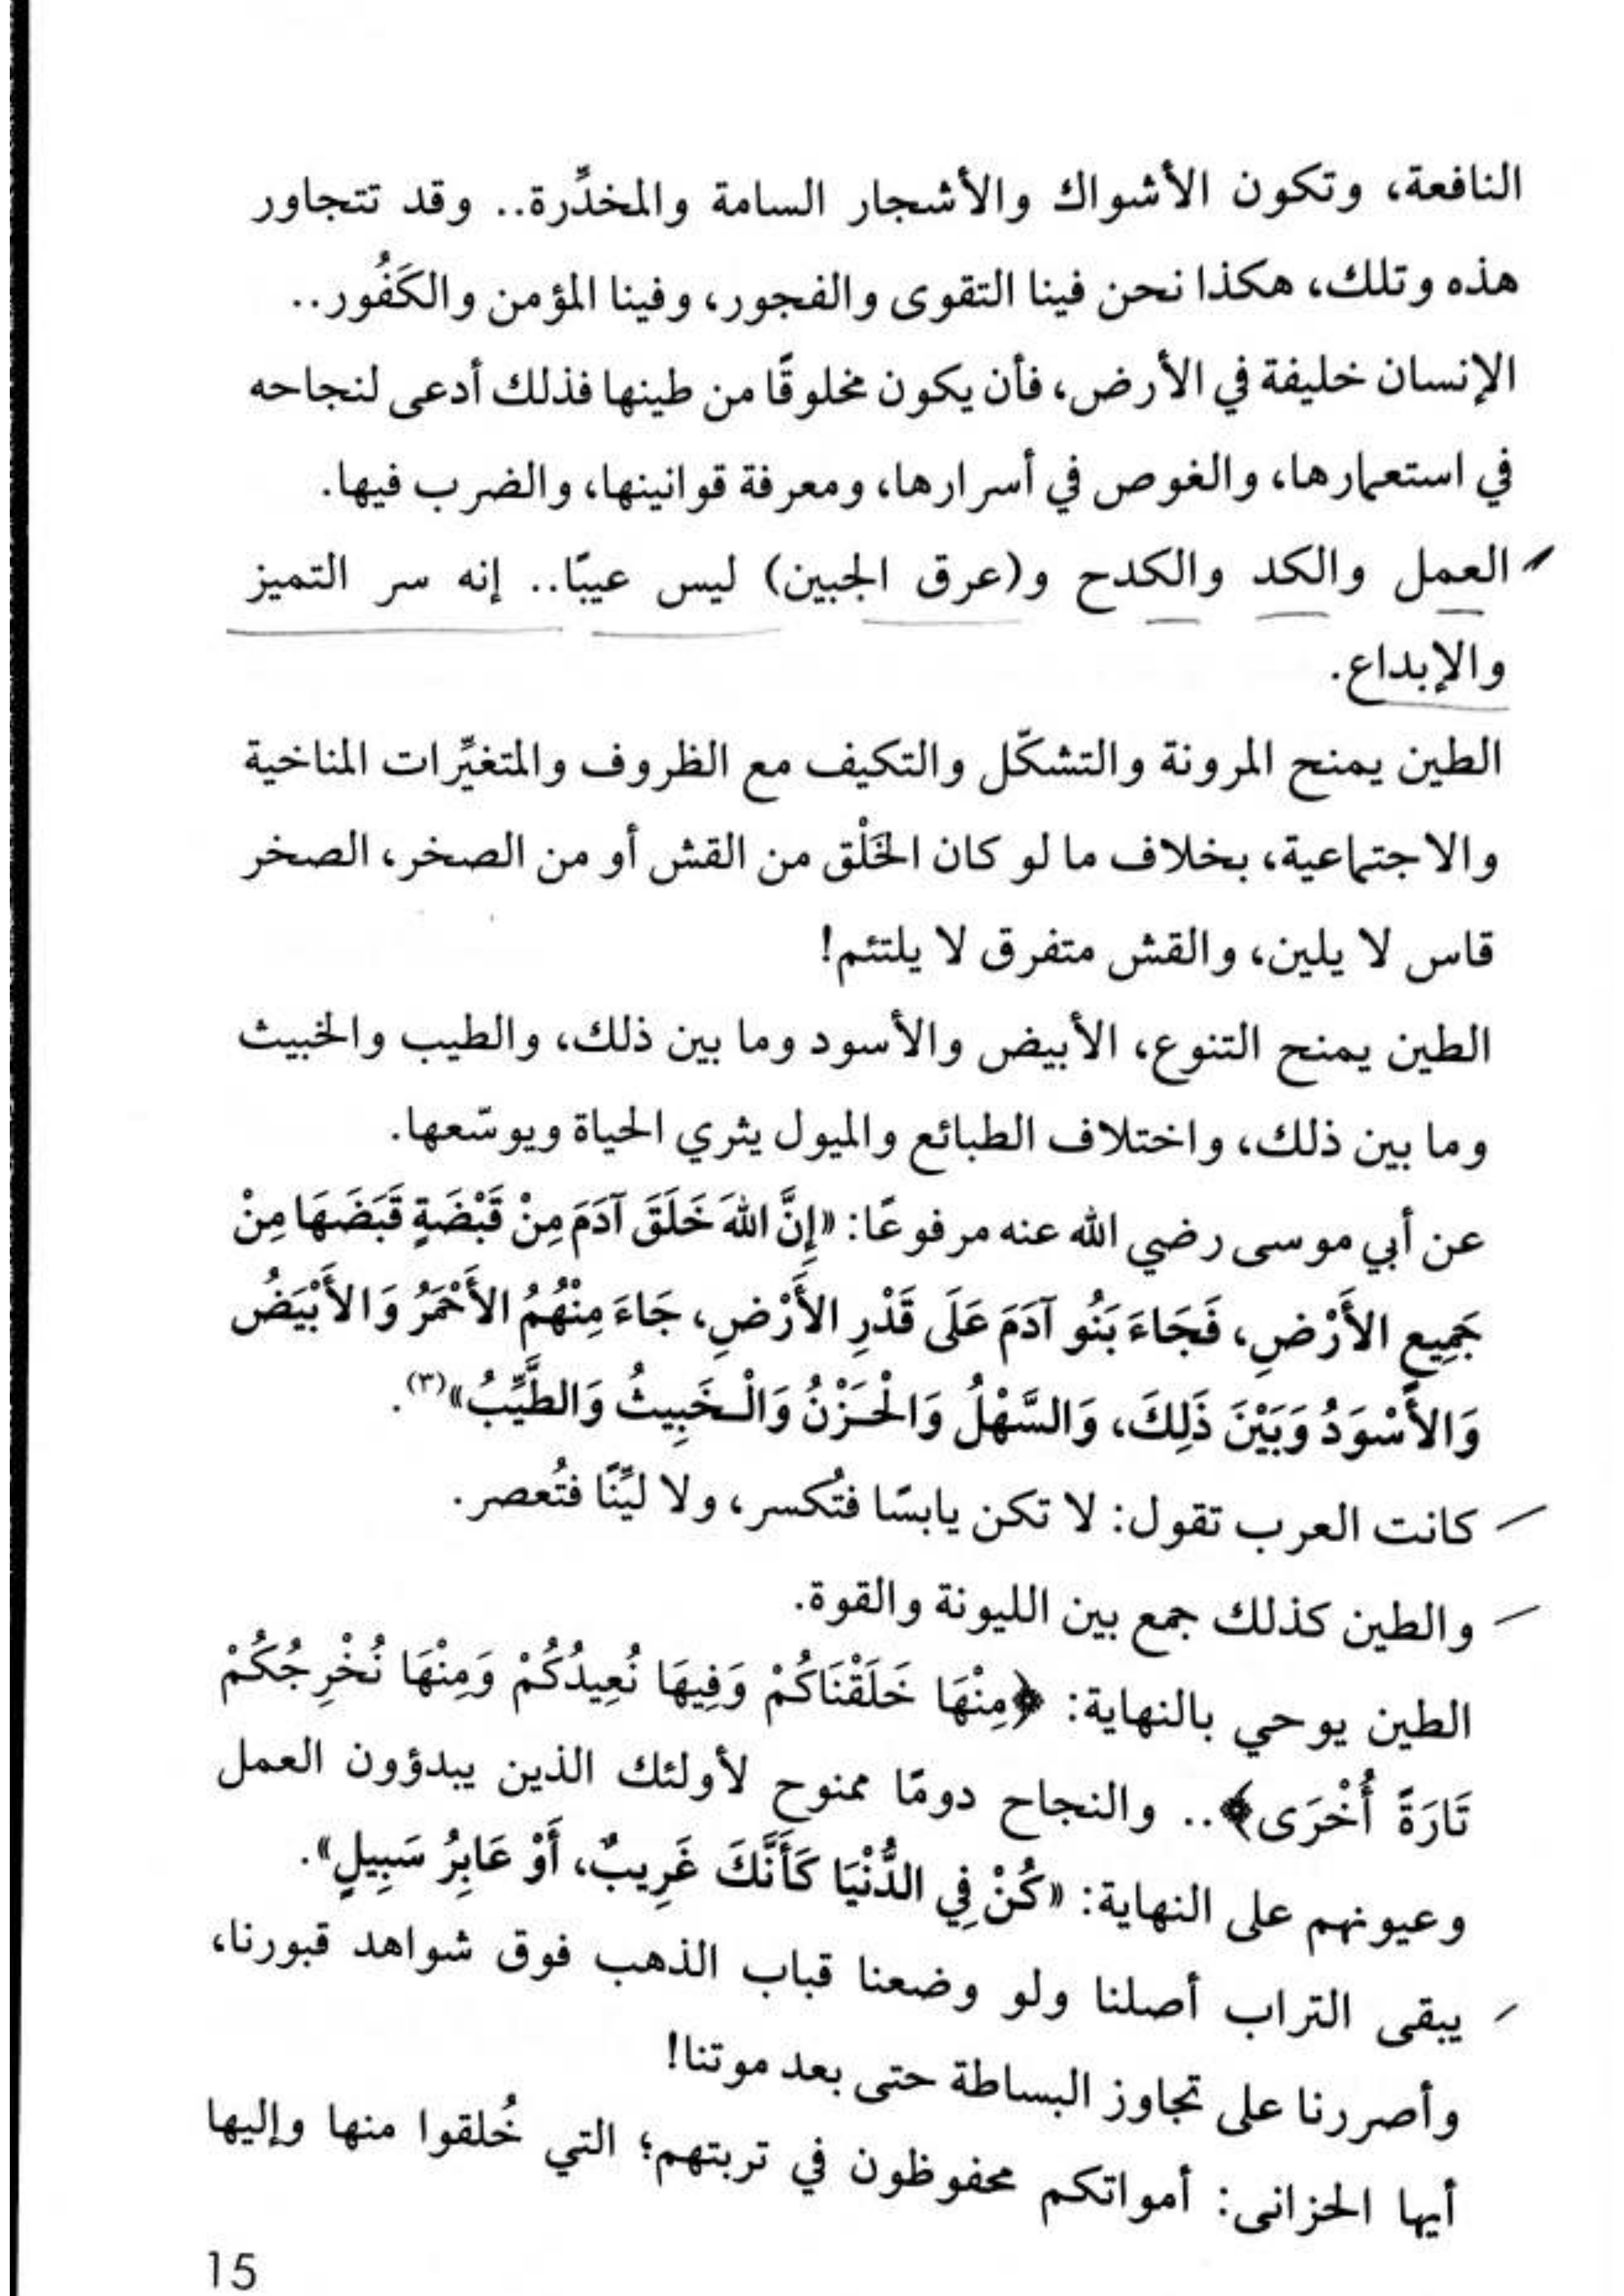 النافعة، وتكون الأشواك والأشجار السامة والمخدِّرة.. وقد تتجاور
هذه وتلك، هكذا نحن فينا التقوى والفجور، وفينا المؤمن والكَفُور..
الإنسان خليفة في الأرض، فأن يكون مخلوقًا من طينها فذلك أدعى لنجاحه
في استعمارها، والغوص في أسرارها، ومعرفة قوانينها، والضرب فيها.
العمل والكد والكدح و(عرق الجبين) ليس عيبًا.. إنه سر التميز
والإبداع.
الطين يمنح المرونة والتشكّل والتكيف مع الظروف والمتغيِّرات المناخية
والاجتماعية، بخلاف ما لو كان الخَلْق من القش أو من الصخر، الصخر
قاس لا يلين، والقش متفرق لا يلتئم!
الطين يمنح التنوع، الأبيض والأسود وما بين ذلك، والطيب والخبيث
وما بين ذلك، واختلاف الطبائع والميول يثري الحياة ويوسّعها.
عن أبي موسى رضي الله عنه مرفوعًا: «إِنَّ اللهَ خَلَقَ آدَمَ مِنْ قَبْضَةٍ قَبَضَهَا مِنْ
جَمِيعِ الأَرْضِ، فَجَاءَ بَنُو آدَمَ عَلَى قَدْرِ الأَرْضِ، جَاءَ مِنْهُمُ الأَحْمَرُ وَالأَبْيَضُ
وَالأَسْوَدُ وَبَيْنَ ذَلِكَ، وَالسَّهْلُ وَالْحَزْنُ وَالْخَبِيثُ وَالطَّيِّبُ»(٣).
كانت العرب تقول: لا تكن يابسًا فتُكسر، ولا ليِّنًا فتُعصر.
والطين كذلك جمع بين الليونة والقوة.
الطين يوحي بالنهاية: ﴿مِنْهَا خَلَقْنَاكُمْ وَفِيهَا نُعِيدُكُمْ وَمِنْهَا نُخْرِجُكُمْ
تَارَةً أُخْرَى﴾.. والنجاح دومًا ممنوح لأولئك الذين يبدؤون العمل
وعيونهم على النهاية: «كُنْ فِي الدُّنْيَا كَأَنَّكَ غَرِيبٌ، أَوْ عَابِرُ سَبِيلٍ».
يبقى التراب أصلنا ولو وضعنا قباب الذهب فوق شواهد قبورنا،
وأصررنا على تجاوز البساطة حتى بعد موتنا!
أيها الحزانى: أمواتكم محفوظون في تربتهم؛ التي خُلقوا منها وإليها
15